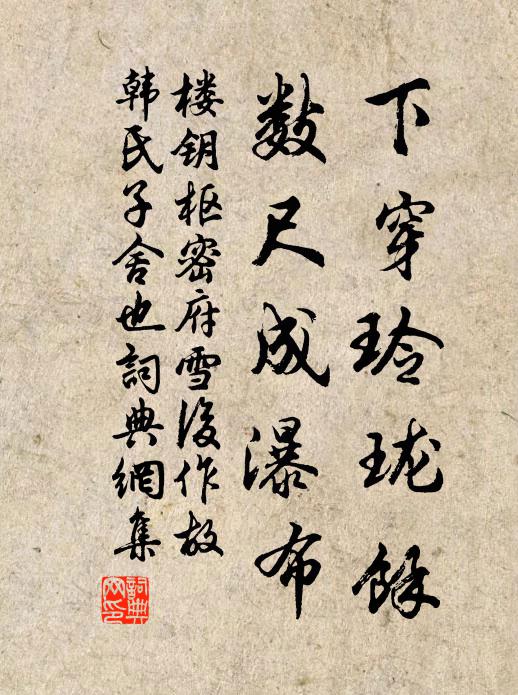 下穿玲珑馀
数尺成瀑布
楼钥枢密府雪后作故
韩氏子舍也词典网集
词典网印